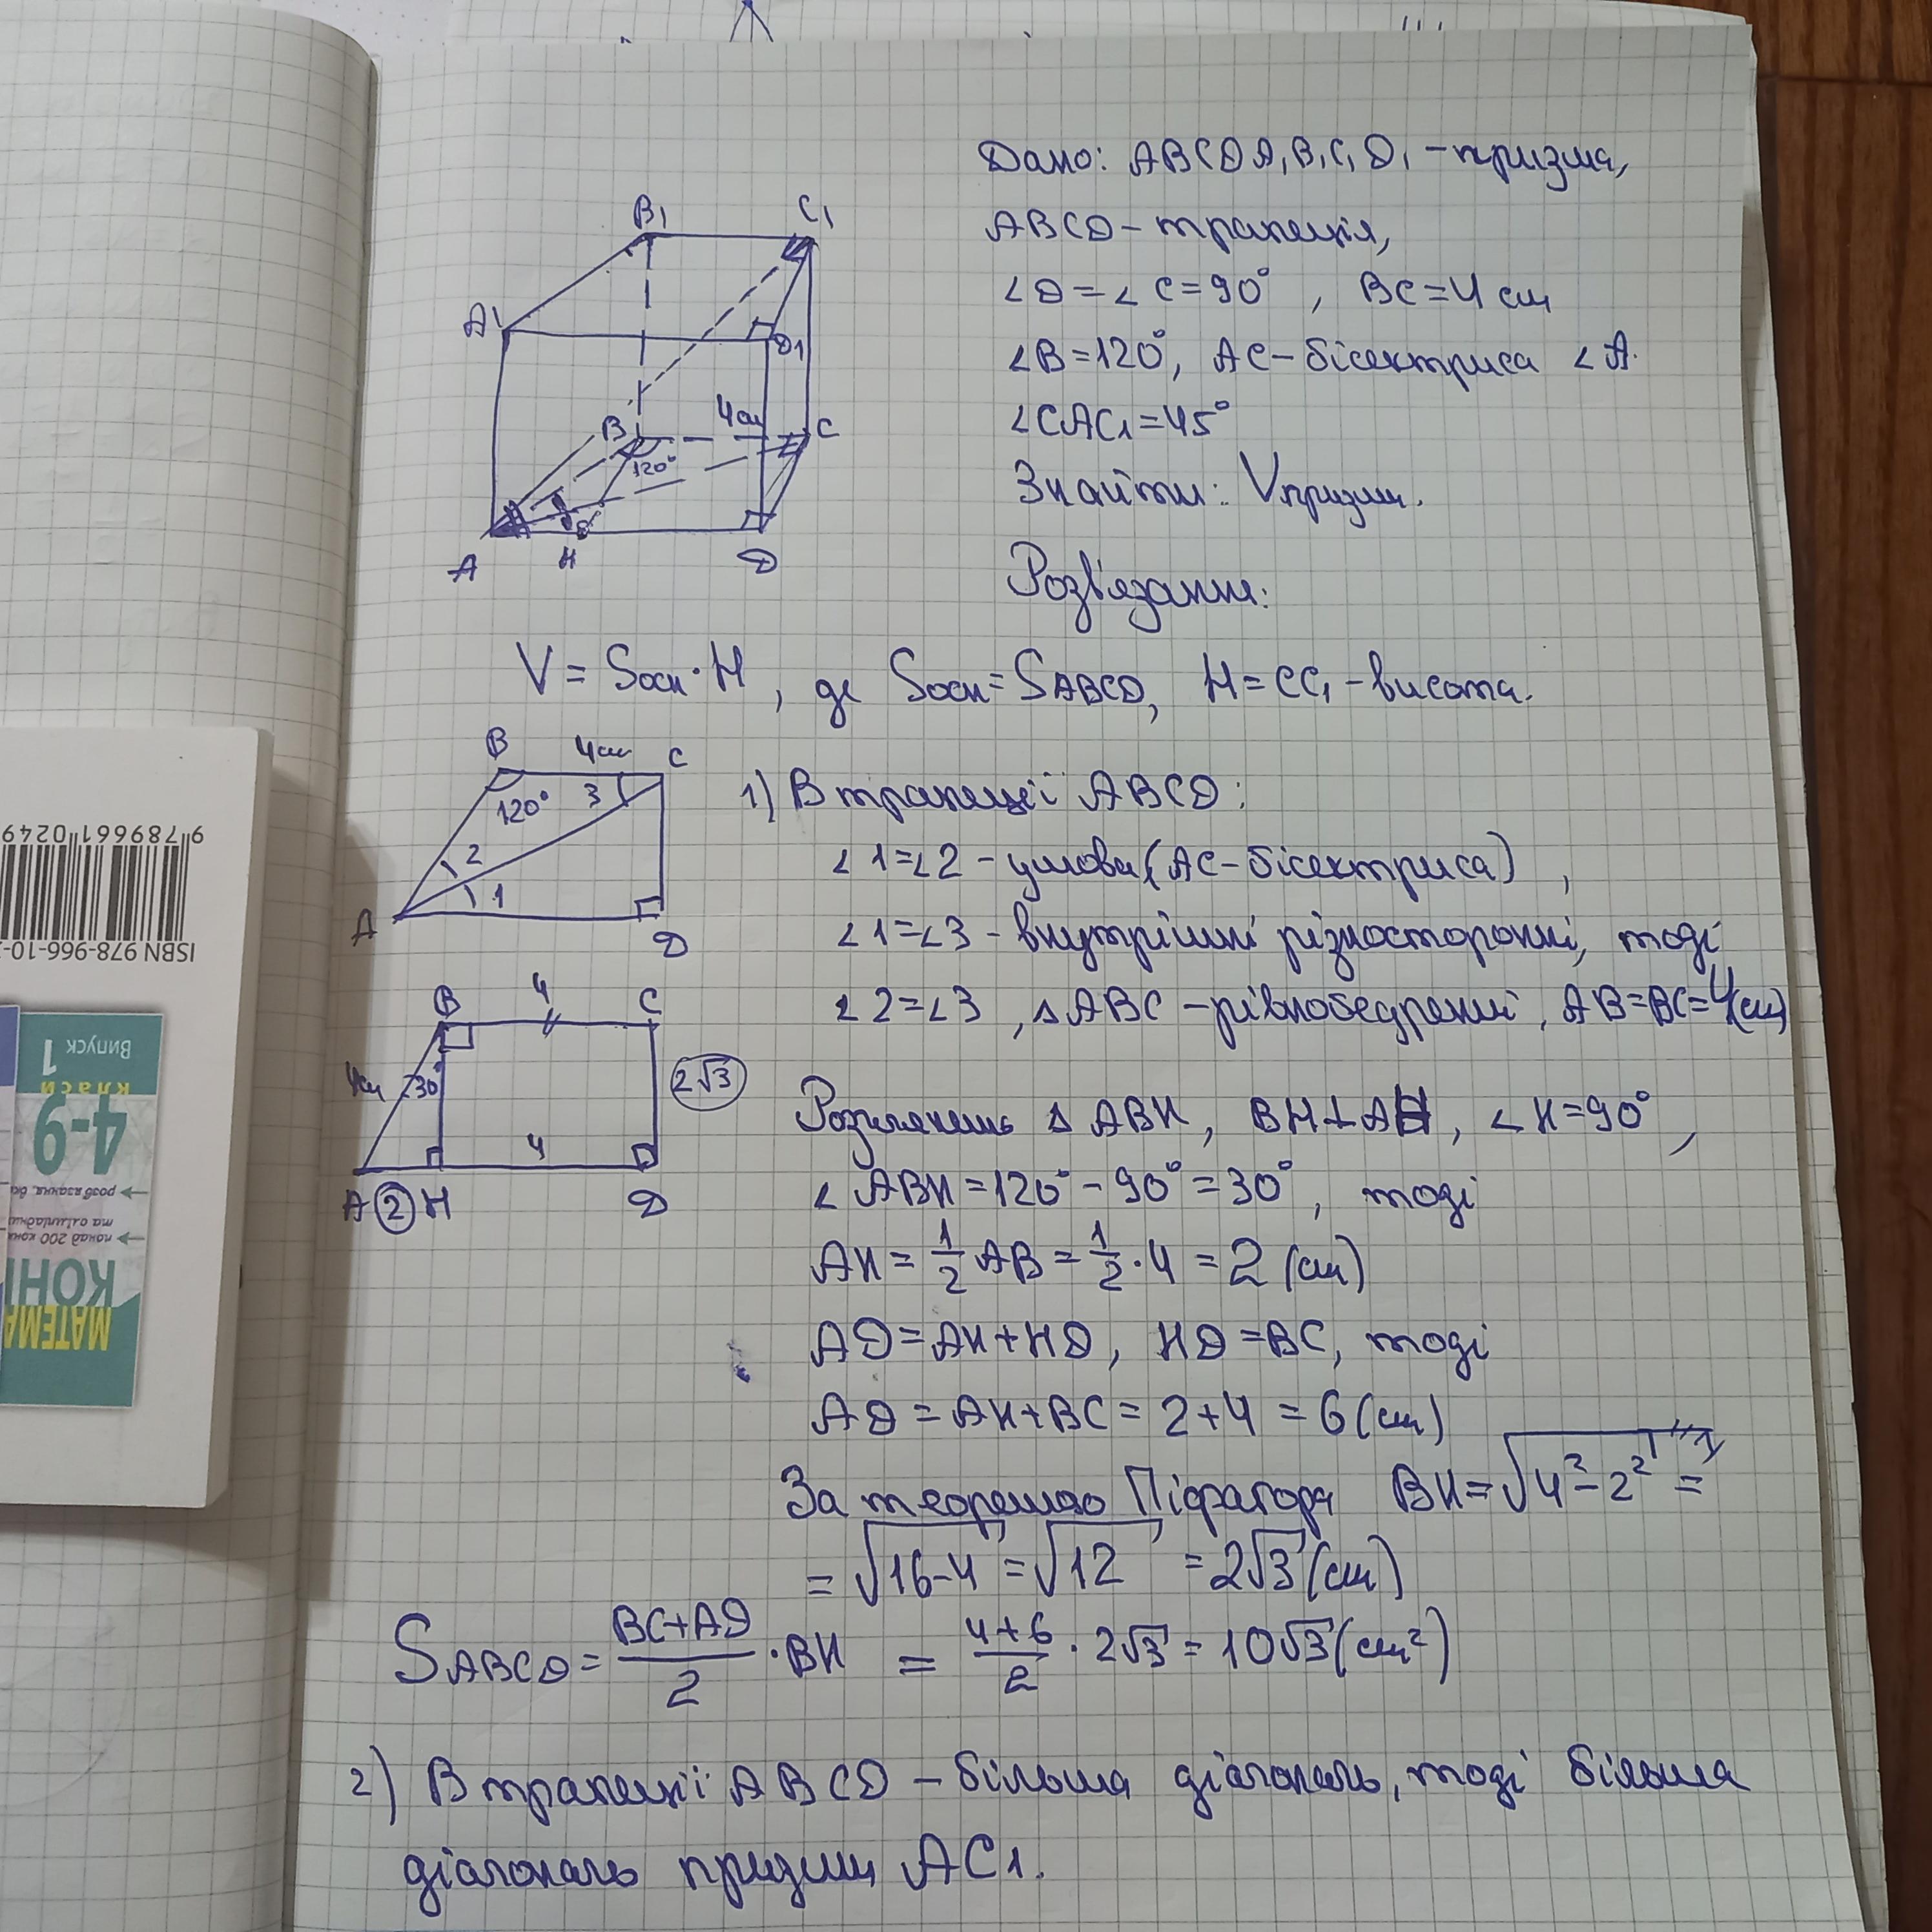 Дано: ABCDA₁B₁C₁D₁ – призма,
ABCD – трапеція,
∠D = ∠C = 90°, BC = 4 см
∠B = 120°, AC – бісектриса ∠A.
∠CAC₁ = 45°
Знайти: Vпризми.
Розв'язання:
B₁ C₁
A₁ D₁
B 4см C
120°
A H D
V = Sосн · H, де Sосн = SABCD, H = CC₁ – висота.
B 4см C
120° 3
2
1
A D
1) В трапеції ABCD:
∠1 = ∠2 – умова (AC – бісектриса),
∠1 = ∠3 – внутрішні різносторонні, тоді
∠2 = ∠3, △ABC – рівнобедрений, AB = BC = 4(см)
B 4 C
4см 30° 2√3
4
A 2 H D
Розглянемо △ABH, BH ⊥ AH, ∠H = 90°,
∠ABH = 120° – 90° = 30°, тоді
AH = 1/2 AB = 1/2 · 4 = 2 (см)
AD = AH + HD, HD = BC, тоді
AD = AH + BC = 2 + 4 = 6 (см)
За теоремою Піфагора BH = √(4² – 2²) =
= √(16–4) = √12 = 2√3 (см)
SABCD = (BC+AD)/2 · BH = (4+6)/2 · 2√3 = 10√3 (см²)
2) В трапеції ABCD – більша діагональ, тоді більша
діагональ призми AC₁.
9 789661 0249
ISBN 978-966-10-
Випуск 1
класи
4-9
розв'язання, в
та олімпіадни
понад 200 конк
КОН
МАТЕМА